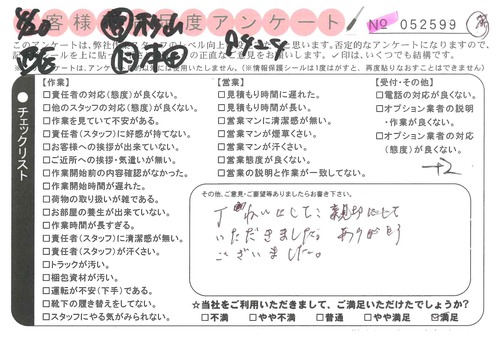 お客様満足度アンケート
No 052599
このアンケートは、弊社
【作業】
□責任者の対応(態度)が良くない。
□他のスタッフの対応(態度)が良くない。
□作業を見ていて不安がある。
□責任者(スタッフ)に好感が持てない。
□お客様への挨拶が出来ていない。
□ご近所への挨拶・気遣いが無い。
□作業開始前の内容確認がなかった。
□作業開始時間が遅れた。
□荷物の取り扱いが雑である。
□お部屋の養生が出来ていない。
□作業時間が長すぎる。
□責任者(スタッフ)に清潔感が無い。
□責任者(スタッフ)が汗くさい。
□トラックが汚い。
□梱包資材が汚い。
□運転が不安(下手)である。
□靴下の履き替えをしてない。
□スタッフにやる気がみられない。
チェックリスト
【営業】
□見積もり時間に遅れた。
□見積もり時間が長い。
□営業マンに清潔感が無い。
□営業マンが煙草くさい。
□営業マンが汗くさい。
□営業態度が良くない。
□営業の説明と作業が一致してない。
【受付・その他】
□電話の対応が良くない。
□オプション業者の説明・作業が良くない。
□オプション業者の対応(態度)が良くない。
+2
その他、ご意見・ご要望等ありましたらお書き下さい。
丁ねいにして、親切にして
いただきました。ありがとう
ございました。
☆当社をご利用いただきまして、ご満足いただけたでしょうか?
□不満 □やや不満 □普通 □やや満足 ☑満足